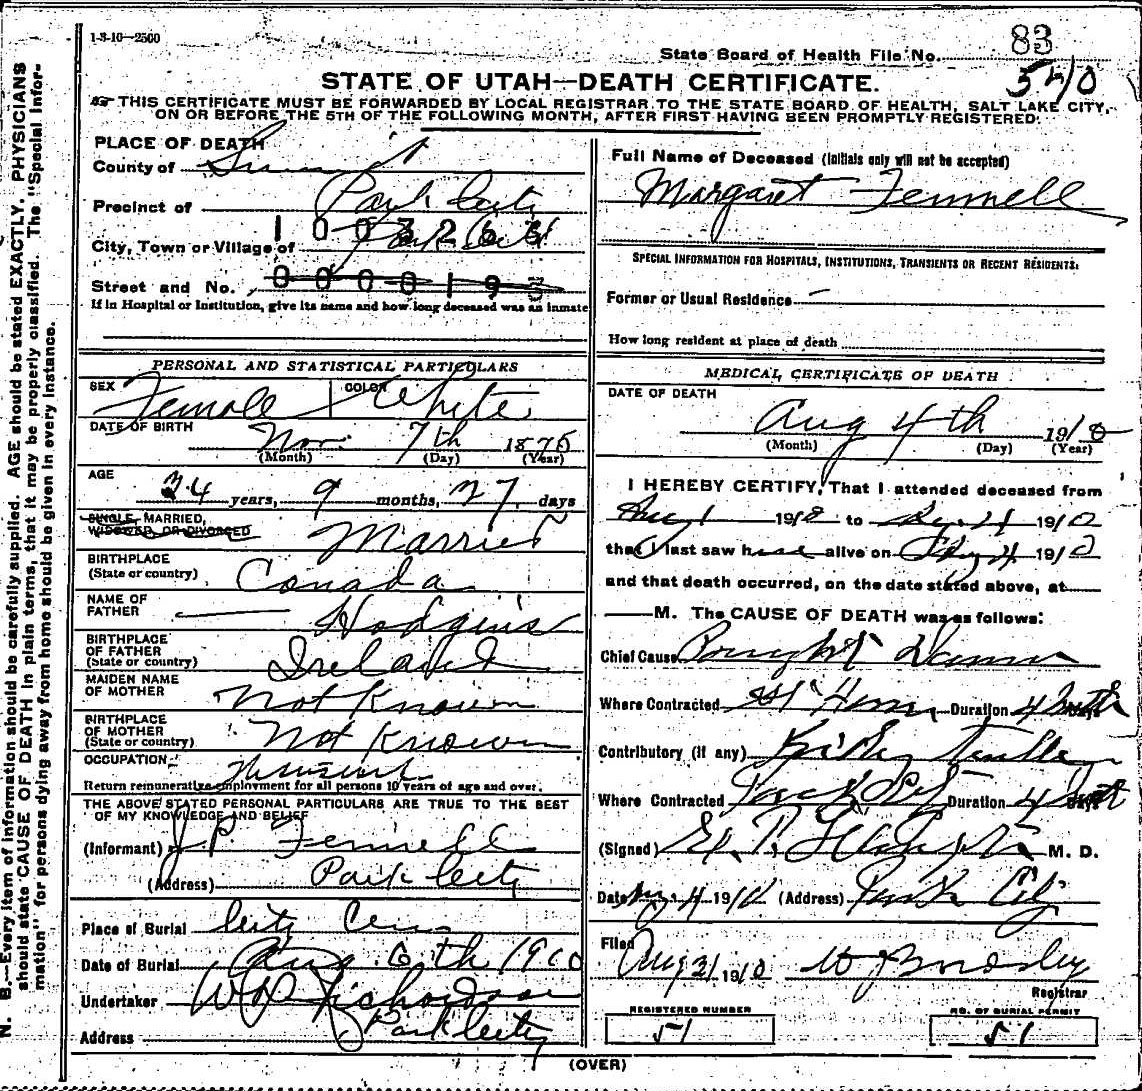 1-3-10—2500
State Board of Health File No. 83
540
STATE OF UTAH—DEATH CERTIFICATE.
THIS CERTIFICATE MUST BE FORWARDED BY LOCAL REGISTRAR TO THE STATE BOARD OF HEALTH, SALT LAKE CITY,
ON OR BEFORE THE 5TH OF THE FOLLOWING MONTH, AFTER FIRST HAVING BEEN PROMPTLY REGISTERED.
N. B.—Every item of information should be carefully supplied. AGE should be stated EXACTLY. PHYSICIANS
should state CAUSE OF DEATH in plain terms, that it may be properly classified. The "Special Infor-
mation" for persons dying away from home should be given in every instance.
PLACE OF DEATH
County of Summit
Precinct of Park City
City, Town or Village of Park City
Street and No. 0000195
If in Hospital or Institution, give its name and how long deceased was an inmate
PERSONAL AND STATISTICAL PARTICULARS
SEX Female COLOR White
DATE OF BIRTH Nov. 7th 1875
(Month) (Day) (Year)
AGE 34 years, 9 months, 27 days
SINGLE, MARRIED,
WIDOWED, OR DIVORCED Married
BIRTHPLACE
(State or country) Canada
NAME OF
FATHER Hodgins
BIRTHPLACE
OF FATHER
(State or country) Ireland
MAIDEN NAME
OF MOTHER Not Known
BIRTHPLACE
OF MOTHER
(State or country) Not Known
OCCUPATION
Return remunerative employment for all persons 10 years of age and over.
THE ABOVE STATED PERSONAL PARTICULARS ARE TRUE TO THE BEST
OF MY KNOWLEDGE AND BELIEF
(Informant) J. P. Fennell
(Address) Park City
Place of Burial City Cem
Date of Burial Aug. 6th 1910
Undertaker W Richardson
Address Park City
Full Name of Deceased (Initials only will not be accepted)
Margaret Fennell
SPECIAL INFORMATION FOR HOSPITALS, INSTITUTIONS, TRANSIENTS OR RECENT RESIDENTS:
Former or Usual Residence —
How long resident at place of death
MEDICAL CERTIFICATE OF DEATH
DATE OF DEATH
Aug 4th 1910
(Month) (Day) (Year)
I HEREBY CERTIFY, That I attended deceased from
Aug 1 1910 to Aug 4 1910
that I last saw her alive on Aug 4 1910
and that death occurred, on the date stated above, at
M. The CAUSE OF DEATH was as follows:
Chief Cause
Where Contracted Duration 4
Contributory (if any)
Where Contracted Park City Duration 4
(Signed) M. D.
Date Aug 4 1910 (Address) Park City
Filed Aug 31 1910
Registrar
REGISTERED NUMBER
51
NO. OF BURIAL PERMIT
51
(OVER)